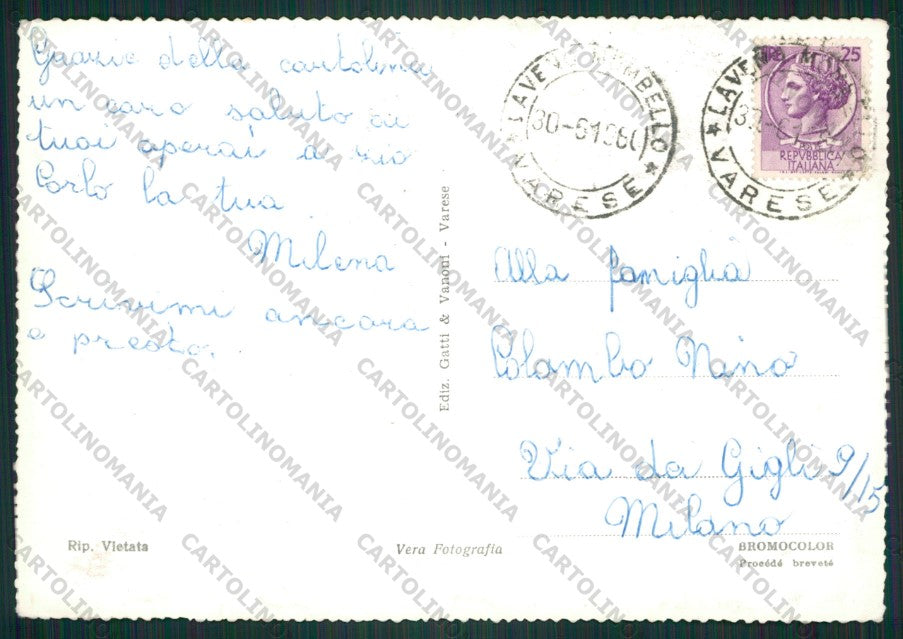 Grazie della cartolina
un caro saluto ai
tuoi a
Carlo la tua
Milena
Scrivimi ancora
e presto.
Ediz. Gatti & Vanoni - Varese
LAVENO MOMBELLO
30-6 1960
* VARESE *
LAVENO MOMBELLO
* VARESE *
LIRE 25
REPVBBLICA
ITALIANA
Alla famiglia
Colombo Nino
Via da Gigli 9/15
Milano
Rip. Vietata
Vera Fotografia
BROMOCOLOR
Procédé breveté
CARTOLINOMANIA